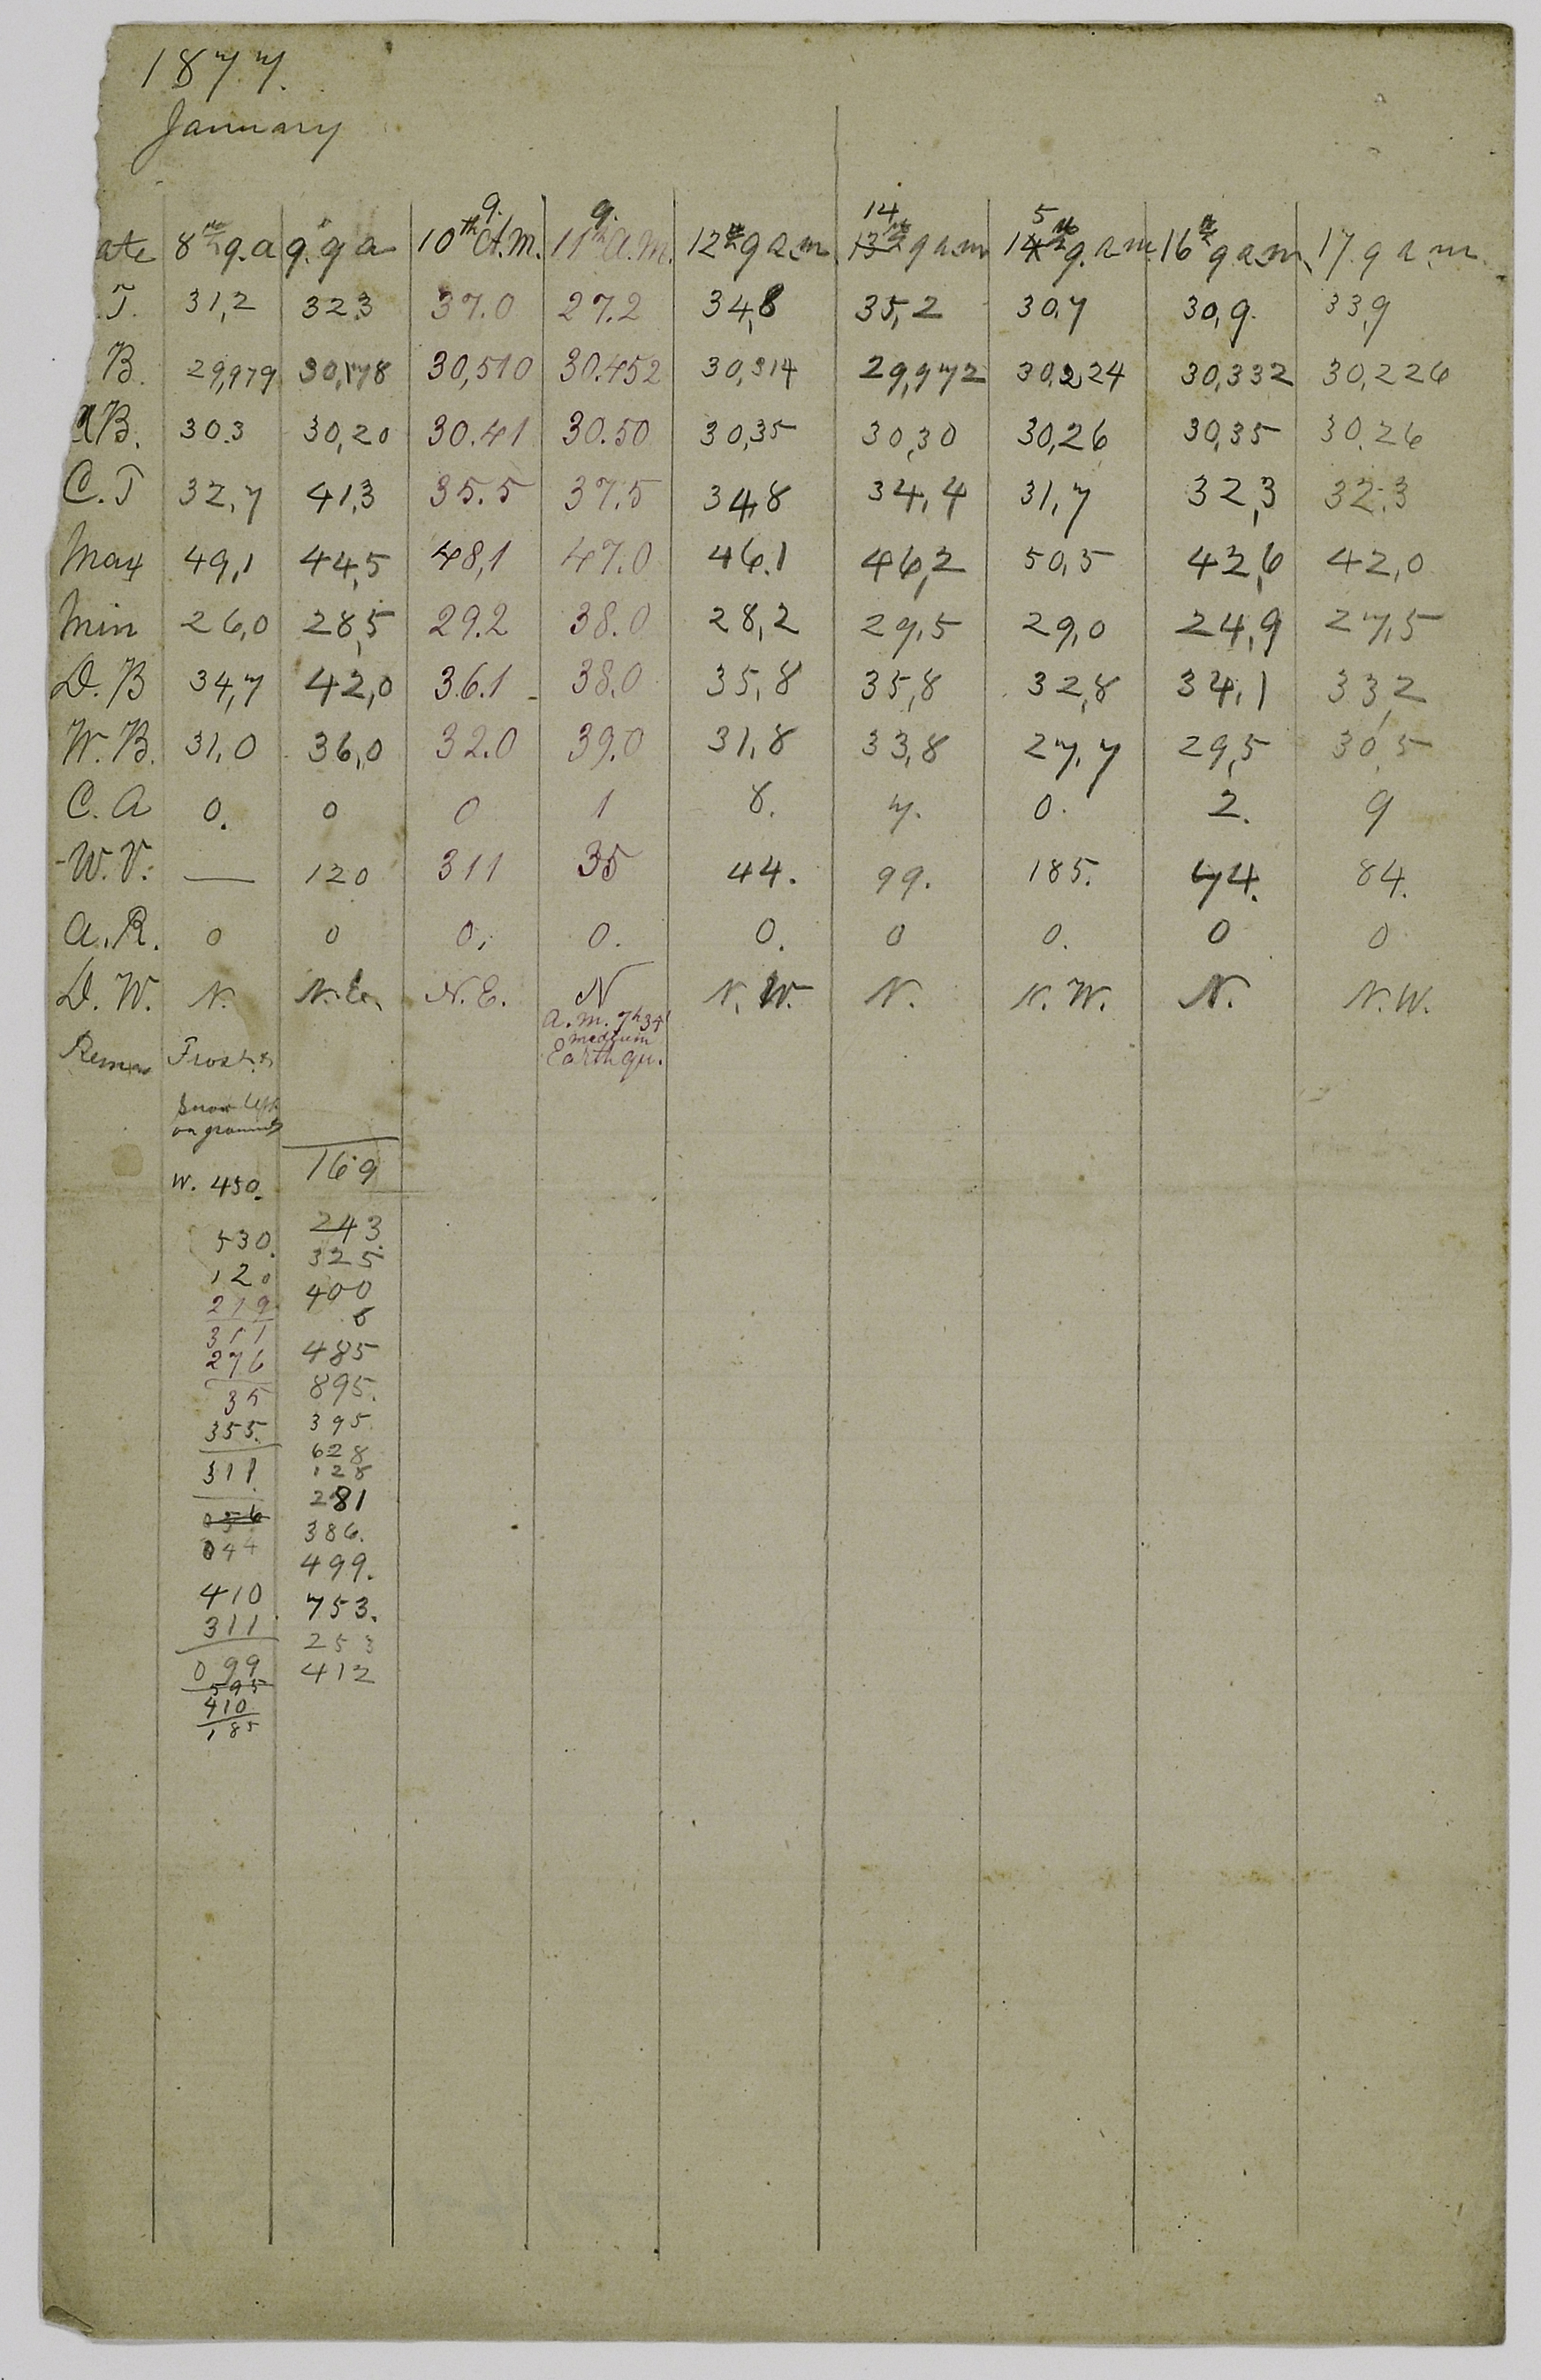 1877.
January
ate 8th 9.a 9. 9 a 10th 9. A.M. 11th 9. A.M. 12th 9 a.m 13th 14 9 a.m 14th 5 9. a.m 16th 9 a.m. 17. 9 a.m.
T. 31,2 32.3 37.0 27.2 34,8 35,2 30,7 30,9. 33,9
B. 29,979 30,178 30,510 30.452 30,314 29,972 30,224 30,332 30,226
AB. 30.3 30,20 30.41 30.50 30,35 30,30 30,26 30,35 30.26
C.T 32,7 41,3 35.5 37.5 34,8 34,4 31,7 32,3 32.3
Max 49,1 44,5 48,1 47.0 46.1 46,2 50,5 42,6 42,0
Min 26,0 28,5 29.2 38.0 28,2 29,5 29,0 24,9 27,5
D.B 34,7 42,0 36.1 38.0 35,8 35,8 32,8 34,1 33,2
W.B. 31,0 36,0 32.0 39.0 31,8 33,8 27,7 29,5 30,5
C.A 0. 0 0 1 8. 7. 0. 2. 9
W.V. — 120 311 35 44. 99. 185. 74. 84.
A.R. 0 0 0. 0. 0. 0 0. 0 0
D.W. N. N.E. N.E. N N.W. N. N.W. N. N.W.
a.m. 7h34'
medium
Earthqu.
Frost
Snow left
on ground
W. 450. 169
530. 243.
120 325
219 400
311 6
276 485
35 895.
355. 395.
311. 628
128
056 281
044 386.
499.
410 753.
311. 253
099 412
595
410
185